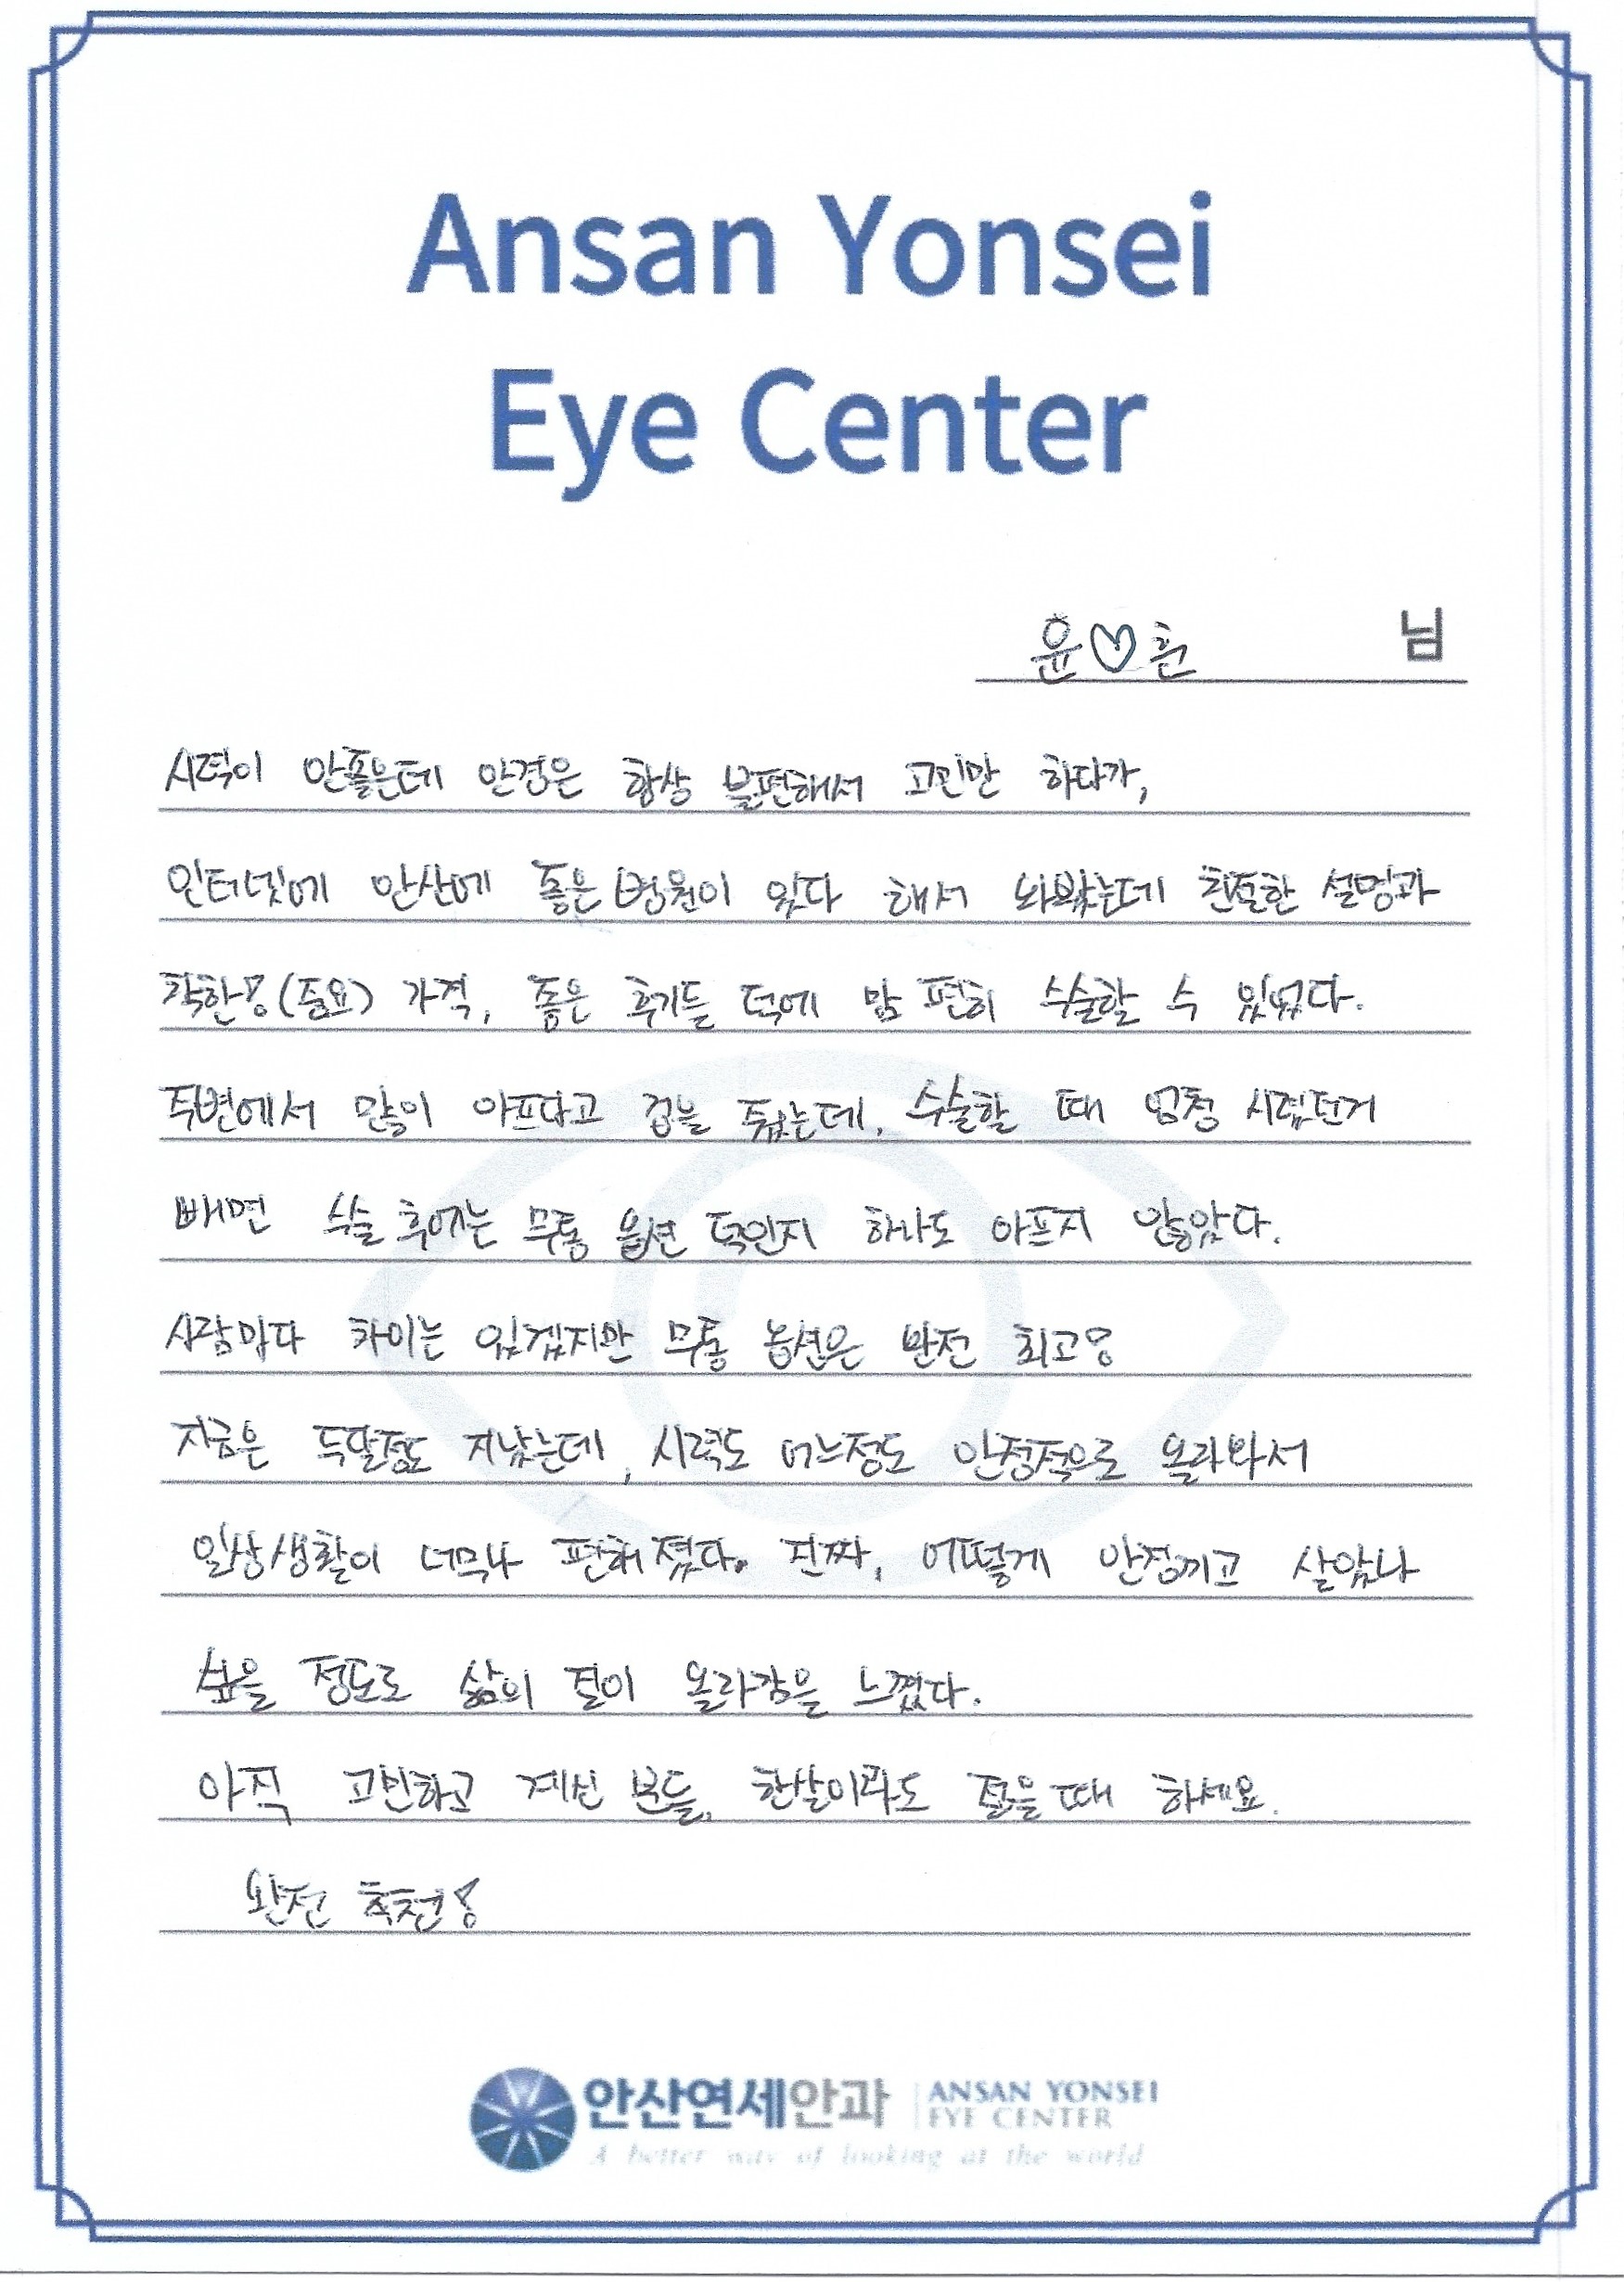 Ansan Yonsei
Eye Center
윤♡훈 님
시력이 안좋은데 안경은 항상 불편해서 고민만 하다가,
인터넷에 안산에 좋은 병원이 있다 해서 와봤는데 친절한 설명과
착한!(중요) 가격, 좋은 후기들 덕에 맘 편히 수술할 수 있었다.
주변에서 많이 아프다고 겁을 줬는데, 수술할 때 엄청 시렵던거
빼면 수술 후에는 무통 옵션 덕인지 하나도 아프지 않았다.
사람마다 차이는 있겠지만 무통 옵션은 완전 최고!
지금은 두달정도 지났는데, 시력도 어느정도 안정적으로 올라와서
일상생활이 너무나 편해졌다. 진짜, 어떻게 안경끼고 살았나
싶을 정도로 삶의 질이 올라감을 느꼈다.
아직 고민하고 계신 분들, 한살이라도 젊을 때 하세요.
완전 추천!
안산연세안과 ANSAN YONSEI
EYE CENTER
A better way of looking at the world